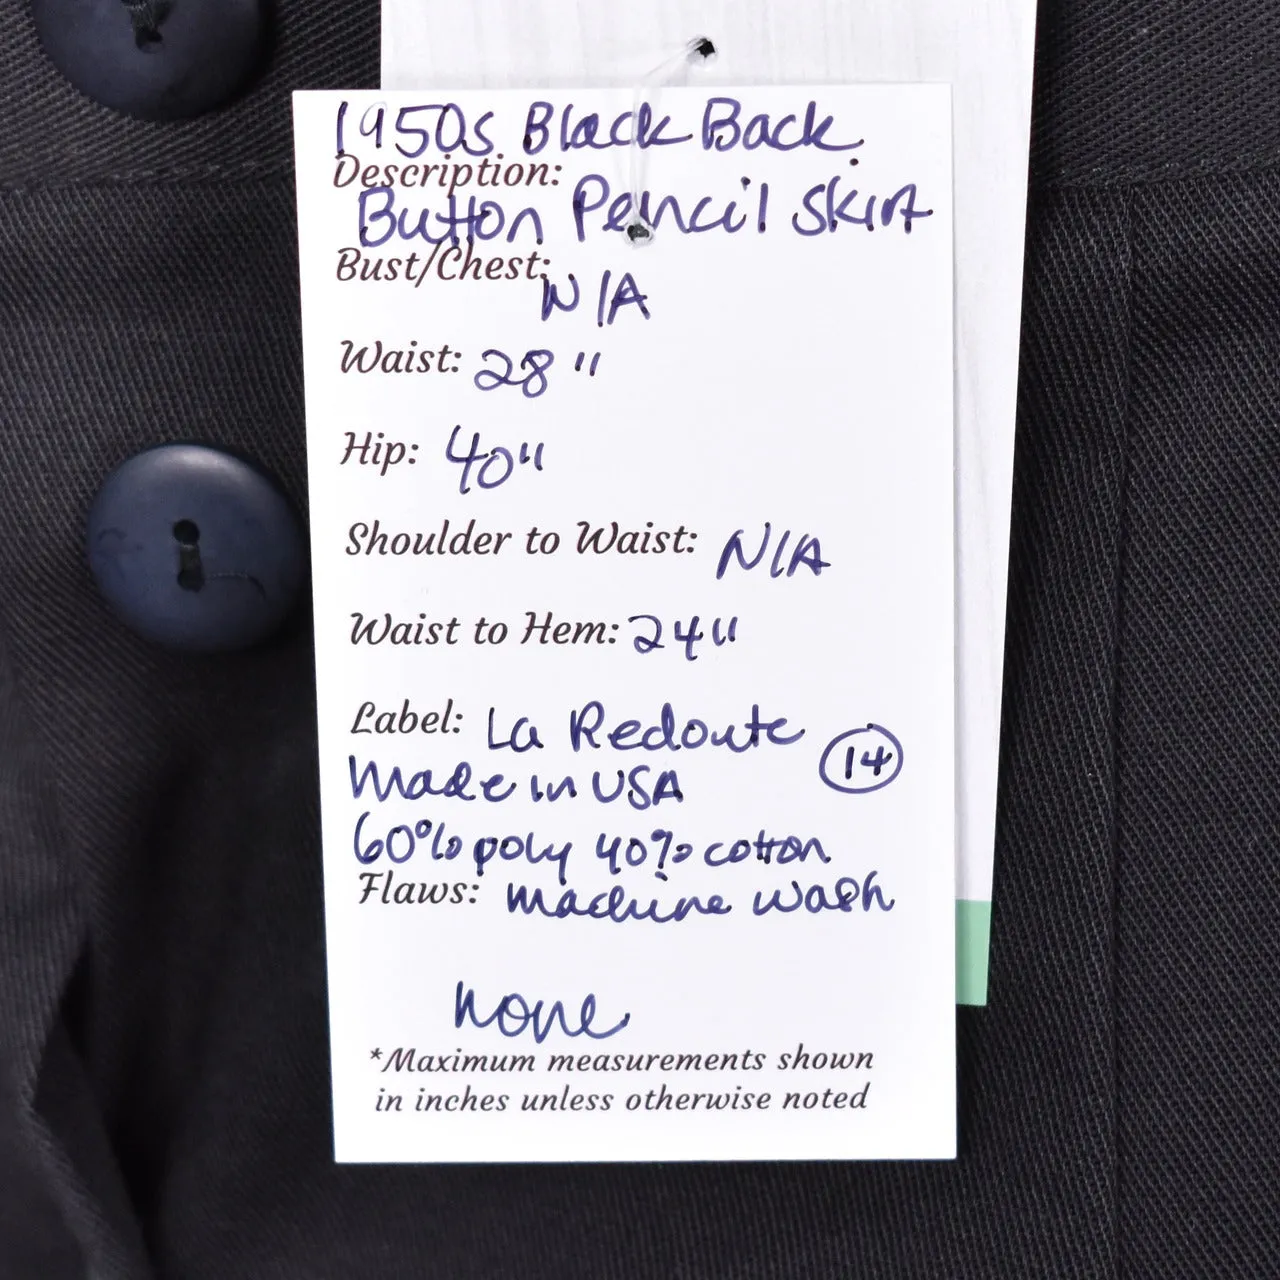 1950s Black Back
Description:
Button Pencil Skirt
Bust/Chest: N/A
Waist: 28"
Hip: 40"
Shoulder to Waist: N/A
Waist to Hem: 24"
Label: La Redoute
14
Made in USA
60% poly 40% cotton
Flaws: machine wash
none
*Maximum measurements shown
in inches unless otherwise noted